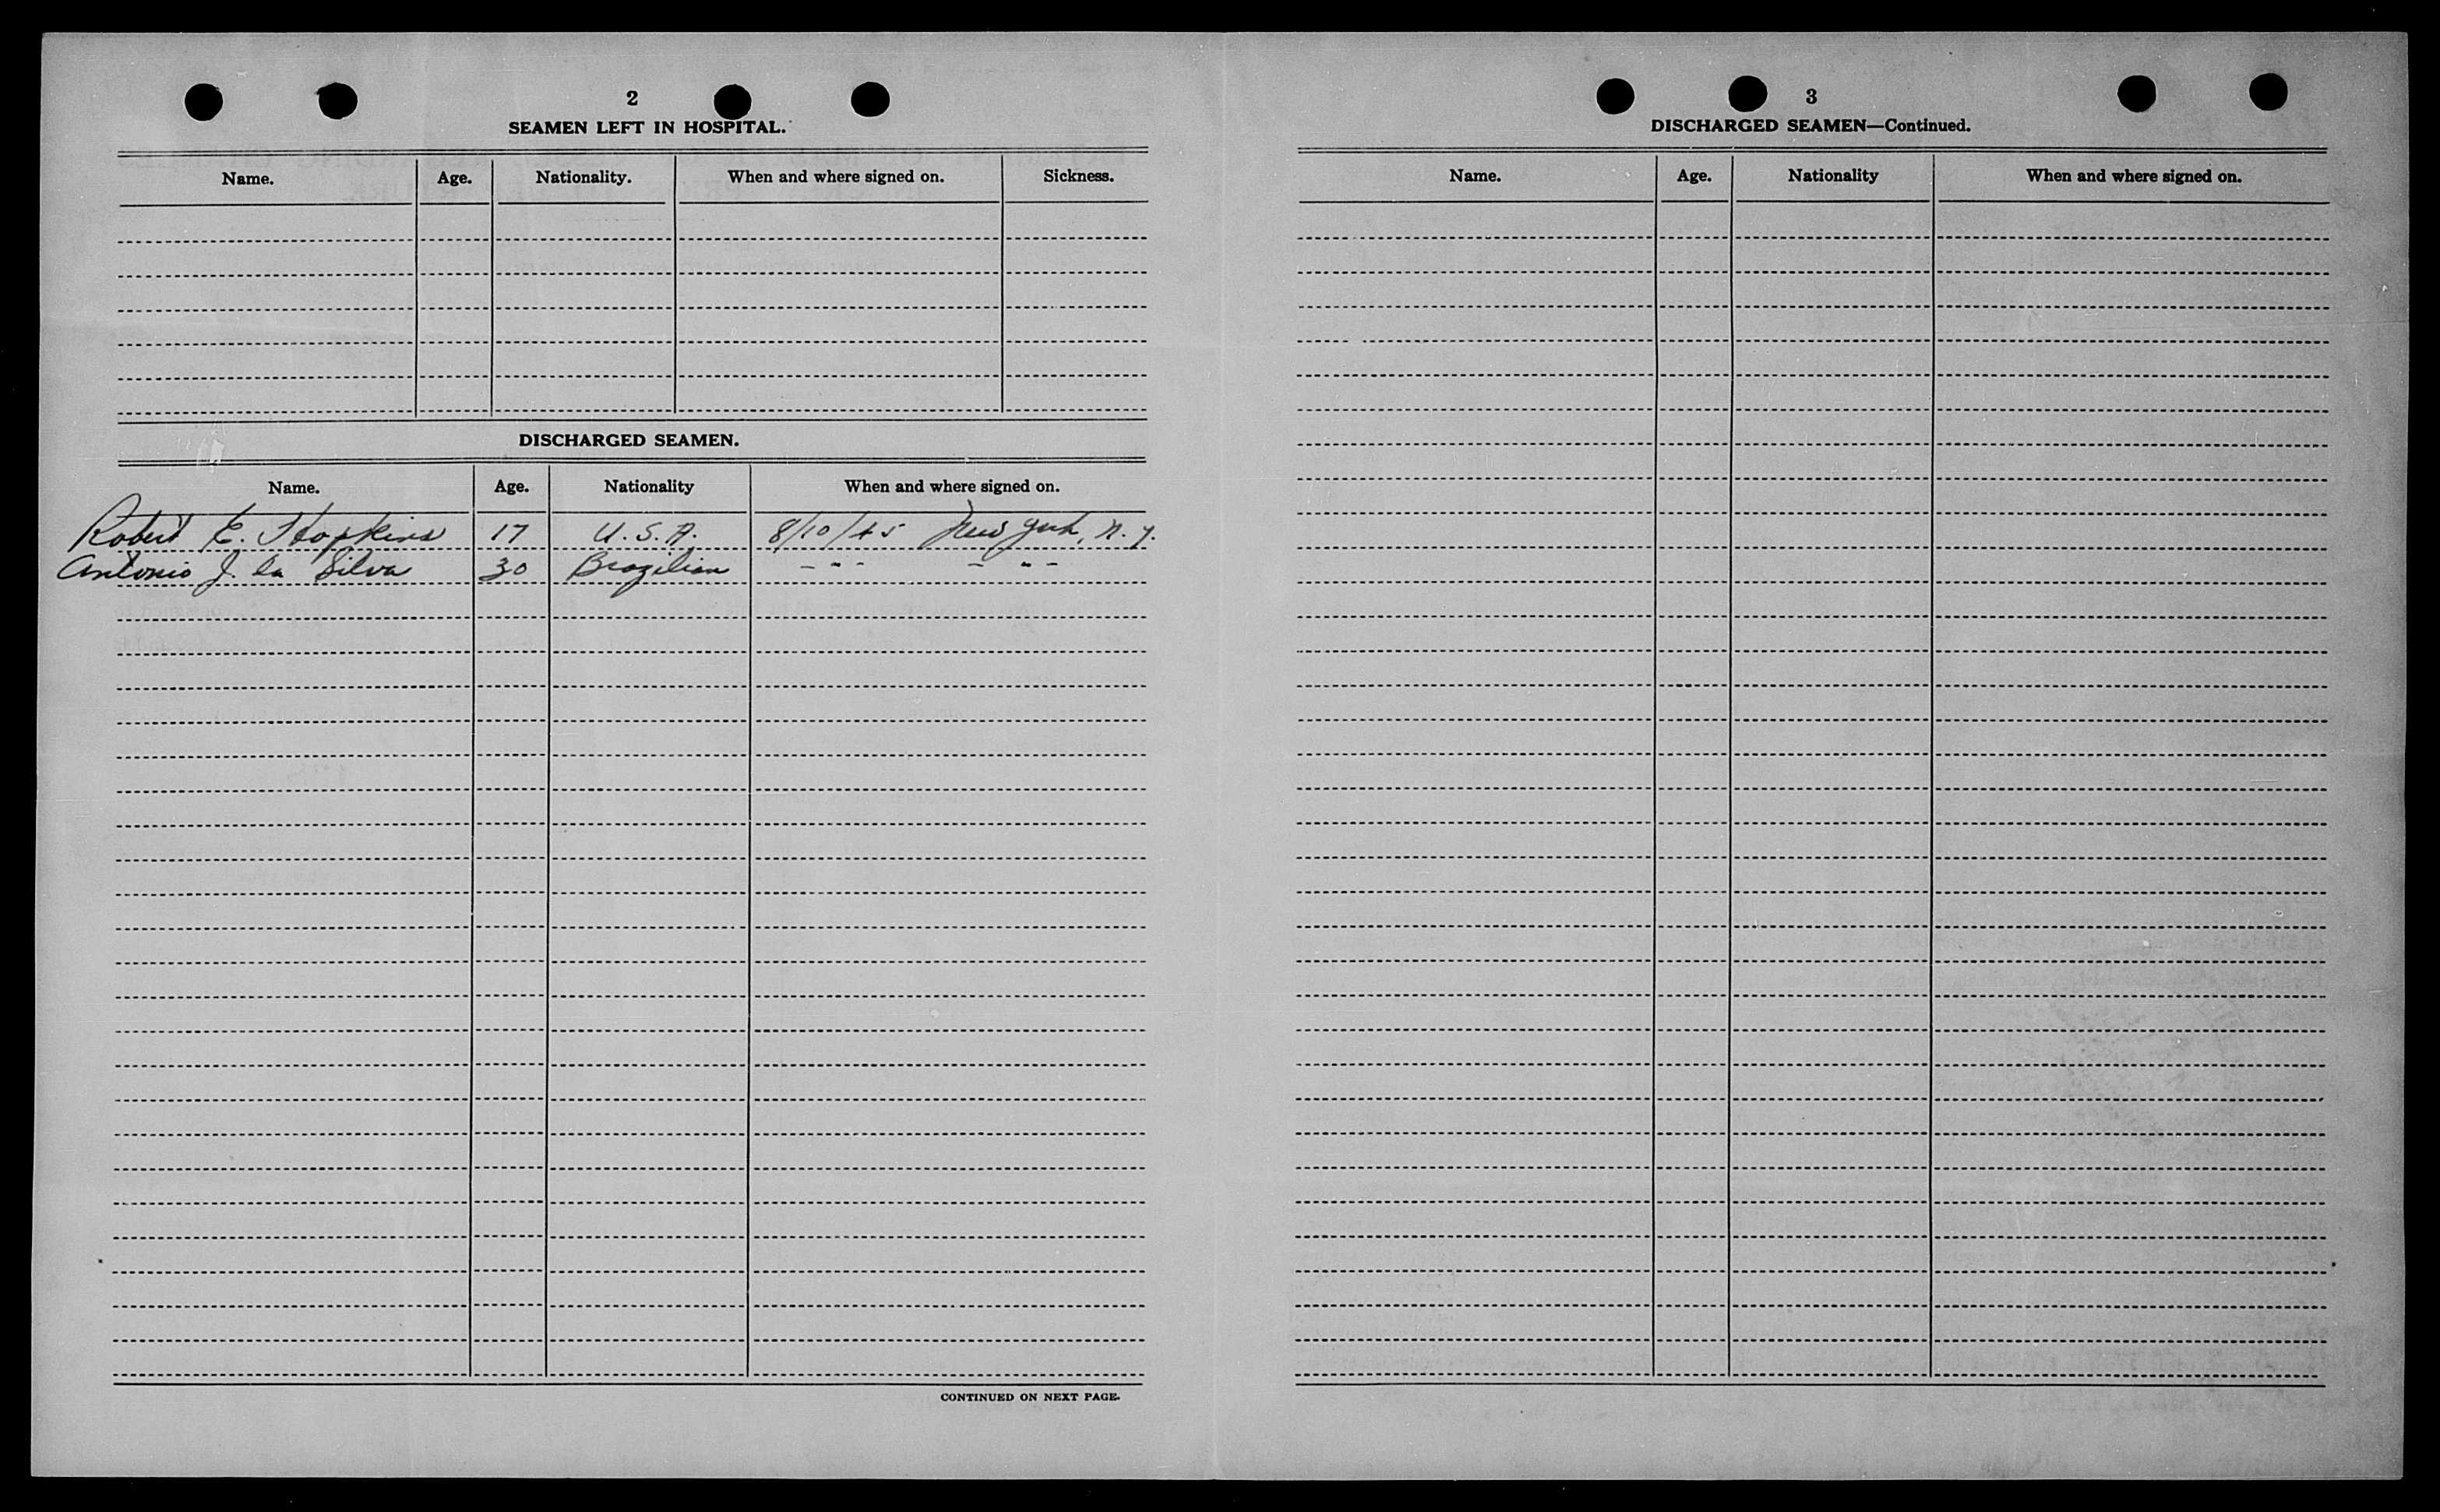 2
SEAMEN LEFT IN HOSPITAL.
Name. Age. Nationality. When and where signed on. Sickness.
DISCHARGED SEAMEN.
Name. Age. Nationality When and where signed on.
Robert E. Hopkins 17 U.S.A. 8/10/45 New York, N.Y.
Antonio J. la Silva 30 Brazilian - " - - " -
CONTINUED ON NEXT PAGE.
3
DISCHARGED SEAMEN—Continued.
Name. Age. Nationality When and where signed on.